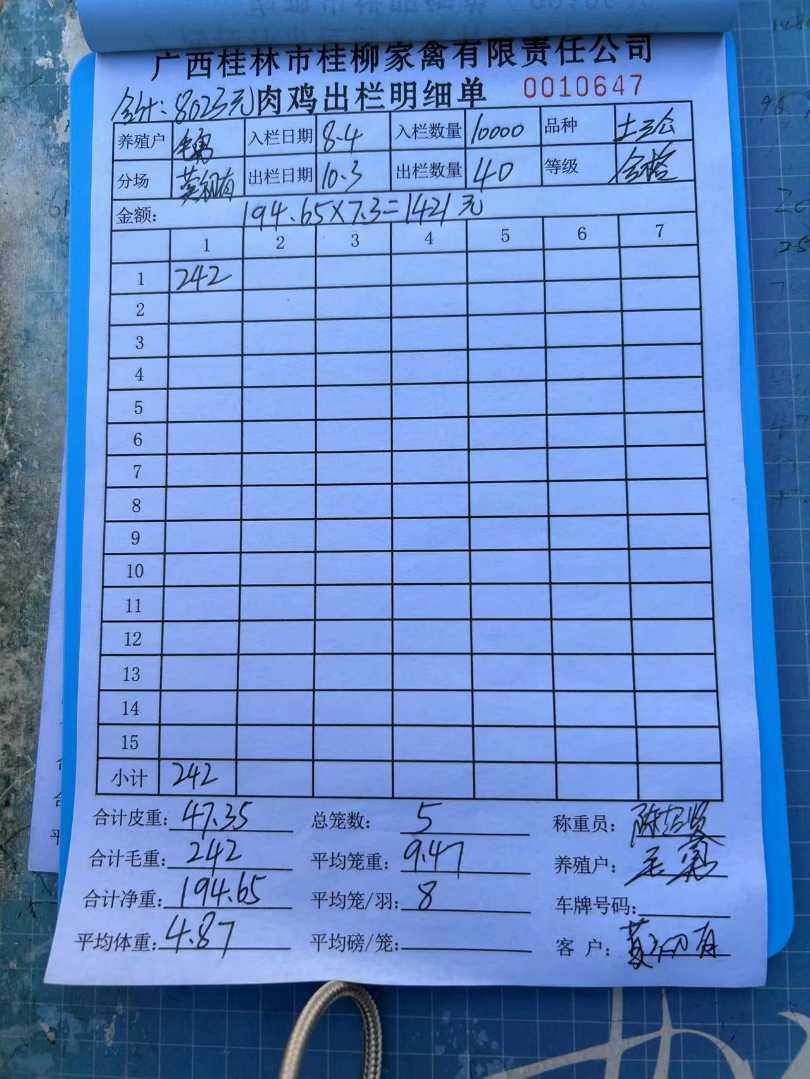 广西桂林市桂柳家禽有限责任公司
合计:8023元 肉鸡出栏明细单 0010647
养殖户 入栏日期 8.4 入栏数量 10000 品种
分场 出栏日期 10.3 出栏数量 40 等级 合格
金额: 194.65×7.3=1421元
1 2 3 4 5 6 7
1 242
2
3
4
5
6
7
8
9
10
11
12
13
14
15
小计 242
合计皮重: 47.35 总笼数: 5 称重员:
合计毛重: 242 平均笼重: 9.47 养殖户:
合计净重: 194.65 平均笼/羽: 8 车牌号码:
平均体重: 4.87 平均磅/笼: 客户: